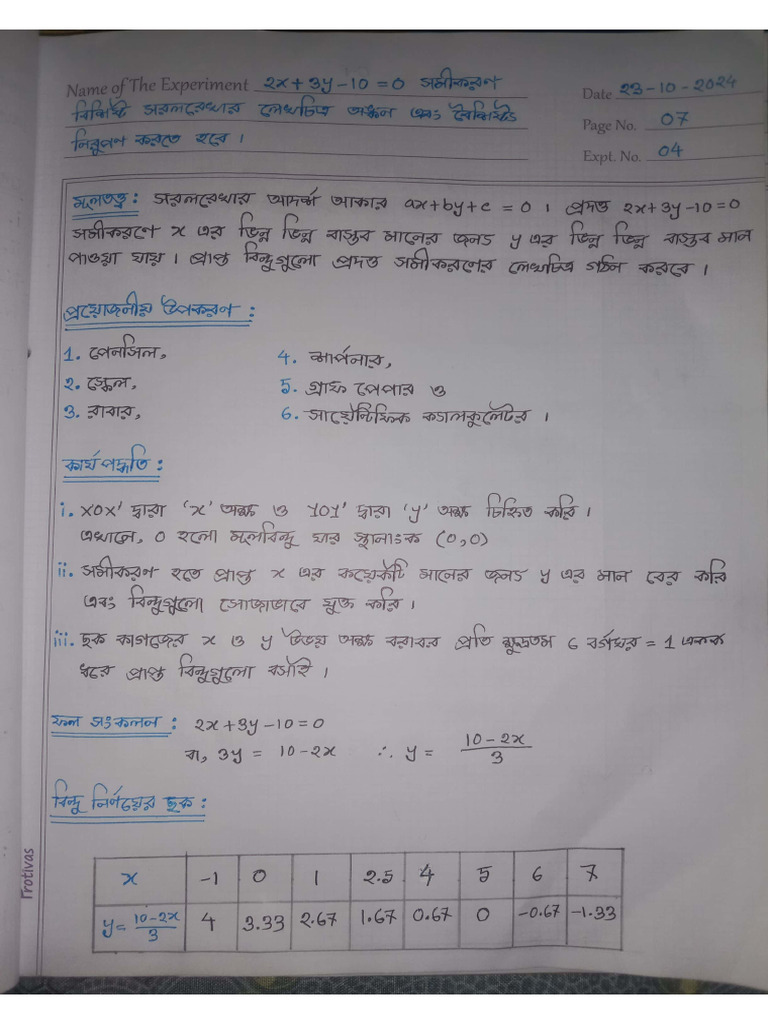 Name of The Experiment 2x + 3y - 10 = 0 সমীকরণ
বিশিষ্ট সরলরেখার লেখচিত্র অঙ্কন এবং বৈশিষ্ট্য
নিরূপণ করতে হবে।
Date 23-10-2024
Page No. 07
Expt. No. 04
মূলতত্ত্ব: সরলরেখার আদর্শ আকার ax+by+c = 0। প্রদত্ত 2x+3y-10=0
সমীকরণে x এর ভিন্ন ভিন্ন বাস্তব মানের জন্য y এর ভিন্ন ভিন্ন বাস্তব মান
পাওয়া যায়। প্রাপ্ত বিন্দুগুলো প্রদত্ত সমীকরণের লেখচিত্র গঠন করবে।
প্রয়োজনীয় উপকরণ:
1. পেনসিল,
2. স্কেল,
3. রাবার,
4. শার্পনার,
5. গ্রাফ পেপার ও
6. সায়েন্টিফিক ক্যালকুলেটর।
কার্যপদ্ধতি:
i. XOX' দ্বারা 'x' অক্ষ ও YOY' দ্বারা 'y' অক্ষ চিহ্নিত করি।
এখানে, 0 হলো মূলবিন্দু যার স্থানাংক (0,0)
ii. সমীকরণ হতে প্রাপ্ত x এর কয়েকটি মানের জন্য y এর মান বের করি
এবং বিন্দুগুলো সোজাভাবে যুক্ত করি।
iii. ছক কাগজের x ও y উভয় অক্ষ বরাবর প্রতি ক্ষুদ্রতম 6 বর্গঘর = 1 একক
ধরে প্রাপ্ত বিন্দুগুলো বসাই।
ফল সংকলন: 2x+3y-10=0
বা, 3y = 10-2x ∴ y = (10-2x)/3
বিন্দু নির্ণয়ের ছক:
x -1 0 1 2.5 4 5 6 7
y = (10-2x)/3 4 3.33 2.67 1.67 0.67 0 -0.67 -1.33
Trotivas